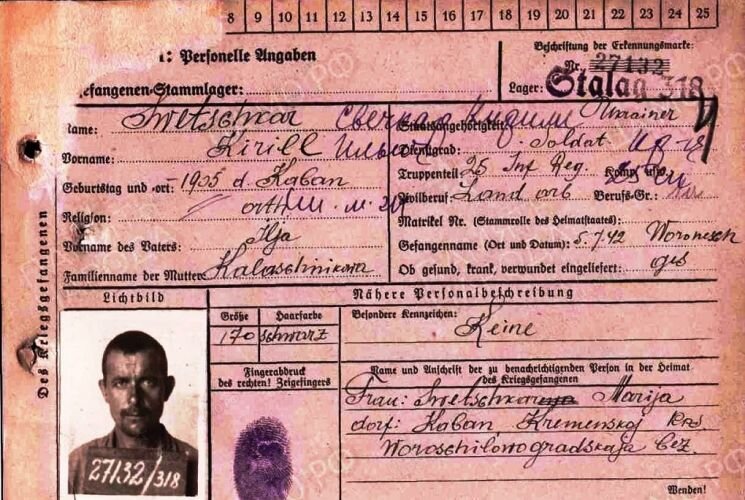 8 9 10 11 12 13 14 15 16 17 18 19 20 21 22 23 24 25
: Personelle Angaben
Beschriftung der Erkennungsmarke:
Nr. 27132
efangenen-Stammlager:
Lager: Stalag 318
Name: Swetschkar Сvечкарь Кирилл
Staatsangehörigkeit: Ukrainer
Vorname: Kirill Ильич
Dienstgrad: Soldat
Geburtstag und -ort: 1905 d. Kaban
Truppenteil: 25 Inf Reg. Komp. usw.:
Zivilberuf: Land arb Berufs-Gr.:
Religion: orth
Matrikel Nr. (Stammrolle des Heimatstaates):
Vorname des Vaters: Ilja
Gefangennahme (Ort und Datum): 5.7.42 Woronesch
Familienname der Mutter: Kalaschnikowa
Ob gesund, krank, verwundet eingeliefert: ges
Des Kriegsgefangenen
Lichtbild
Nähere Personalbeschreibung
Größe Haarfarbe
170 schwarz
Besondere Kennzeichen:
Keine
Fingerabdruck
des rechten! Zeigefingers
Name und Anschrift der zu benachrichtigenden Person in der Heimat
des Kriegsgefangenen
Frau: Marija
dorf: Kaban Kremenskoj Ras.
Woroschilowogradskaja Bez.
27132/318
Wenden!